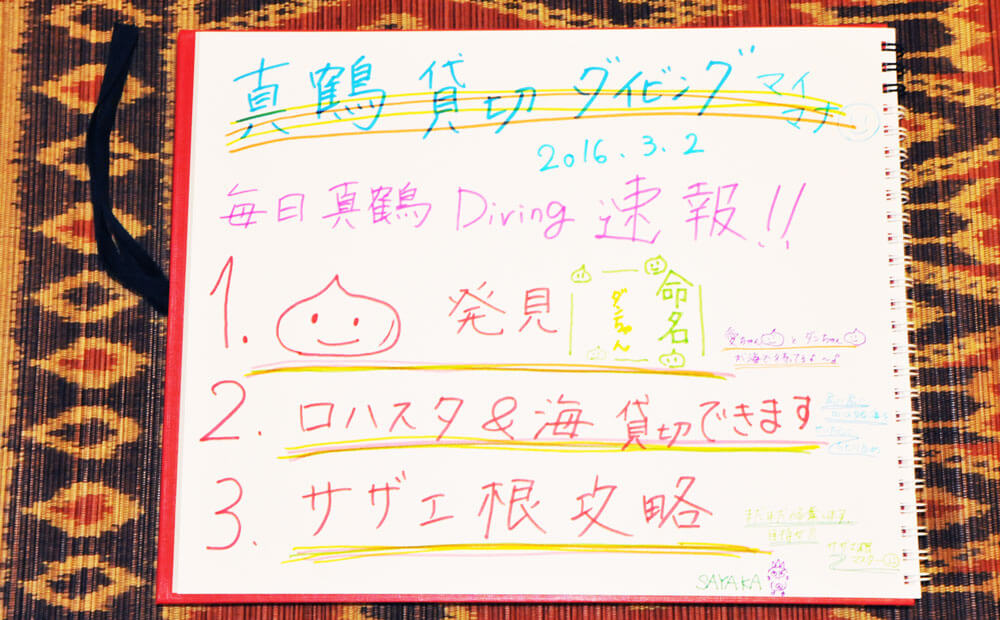 真鶴 貸切 ダイビング マイ
マナ
2016.3.2
毎日真鶴 Diving 速報!!
1. 発見
命名
ダンちゃん
愛ちゃん と ダンちゃん
が海で待ってるよ〜♪
2. ロハスタ & 海 貸切できます
3. サザエ根 攻略
サザエ根
マスター
SAYAKA